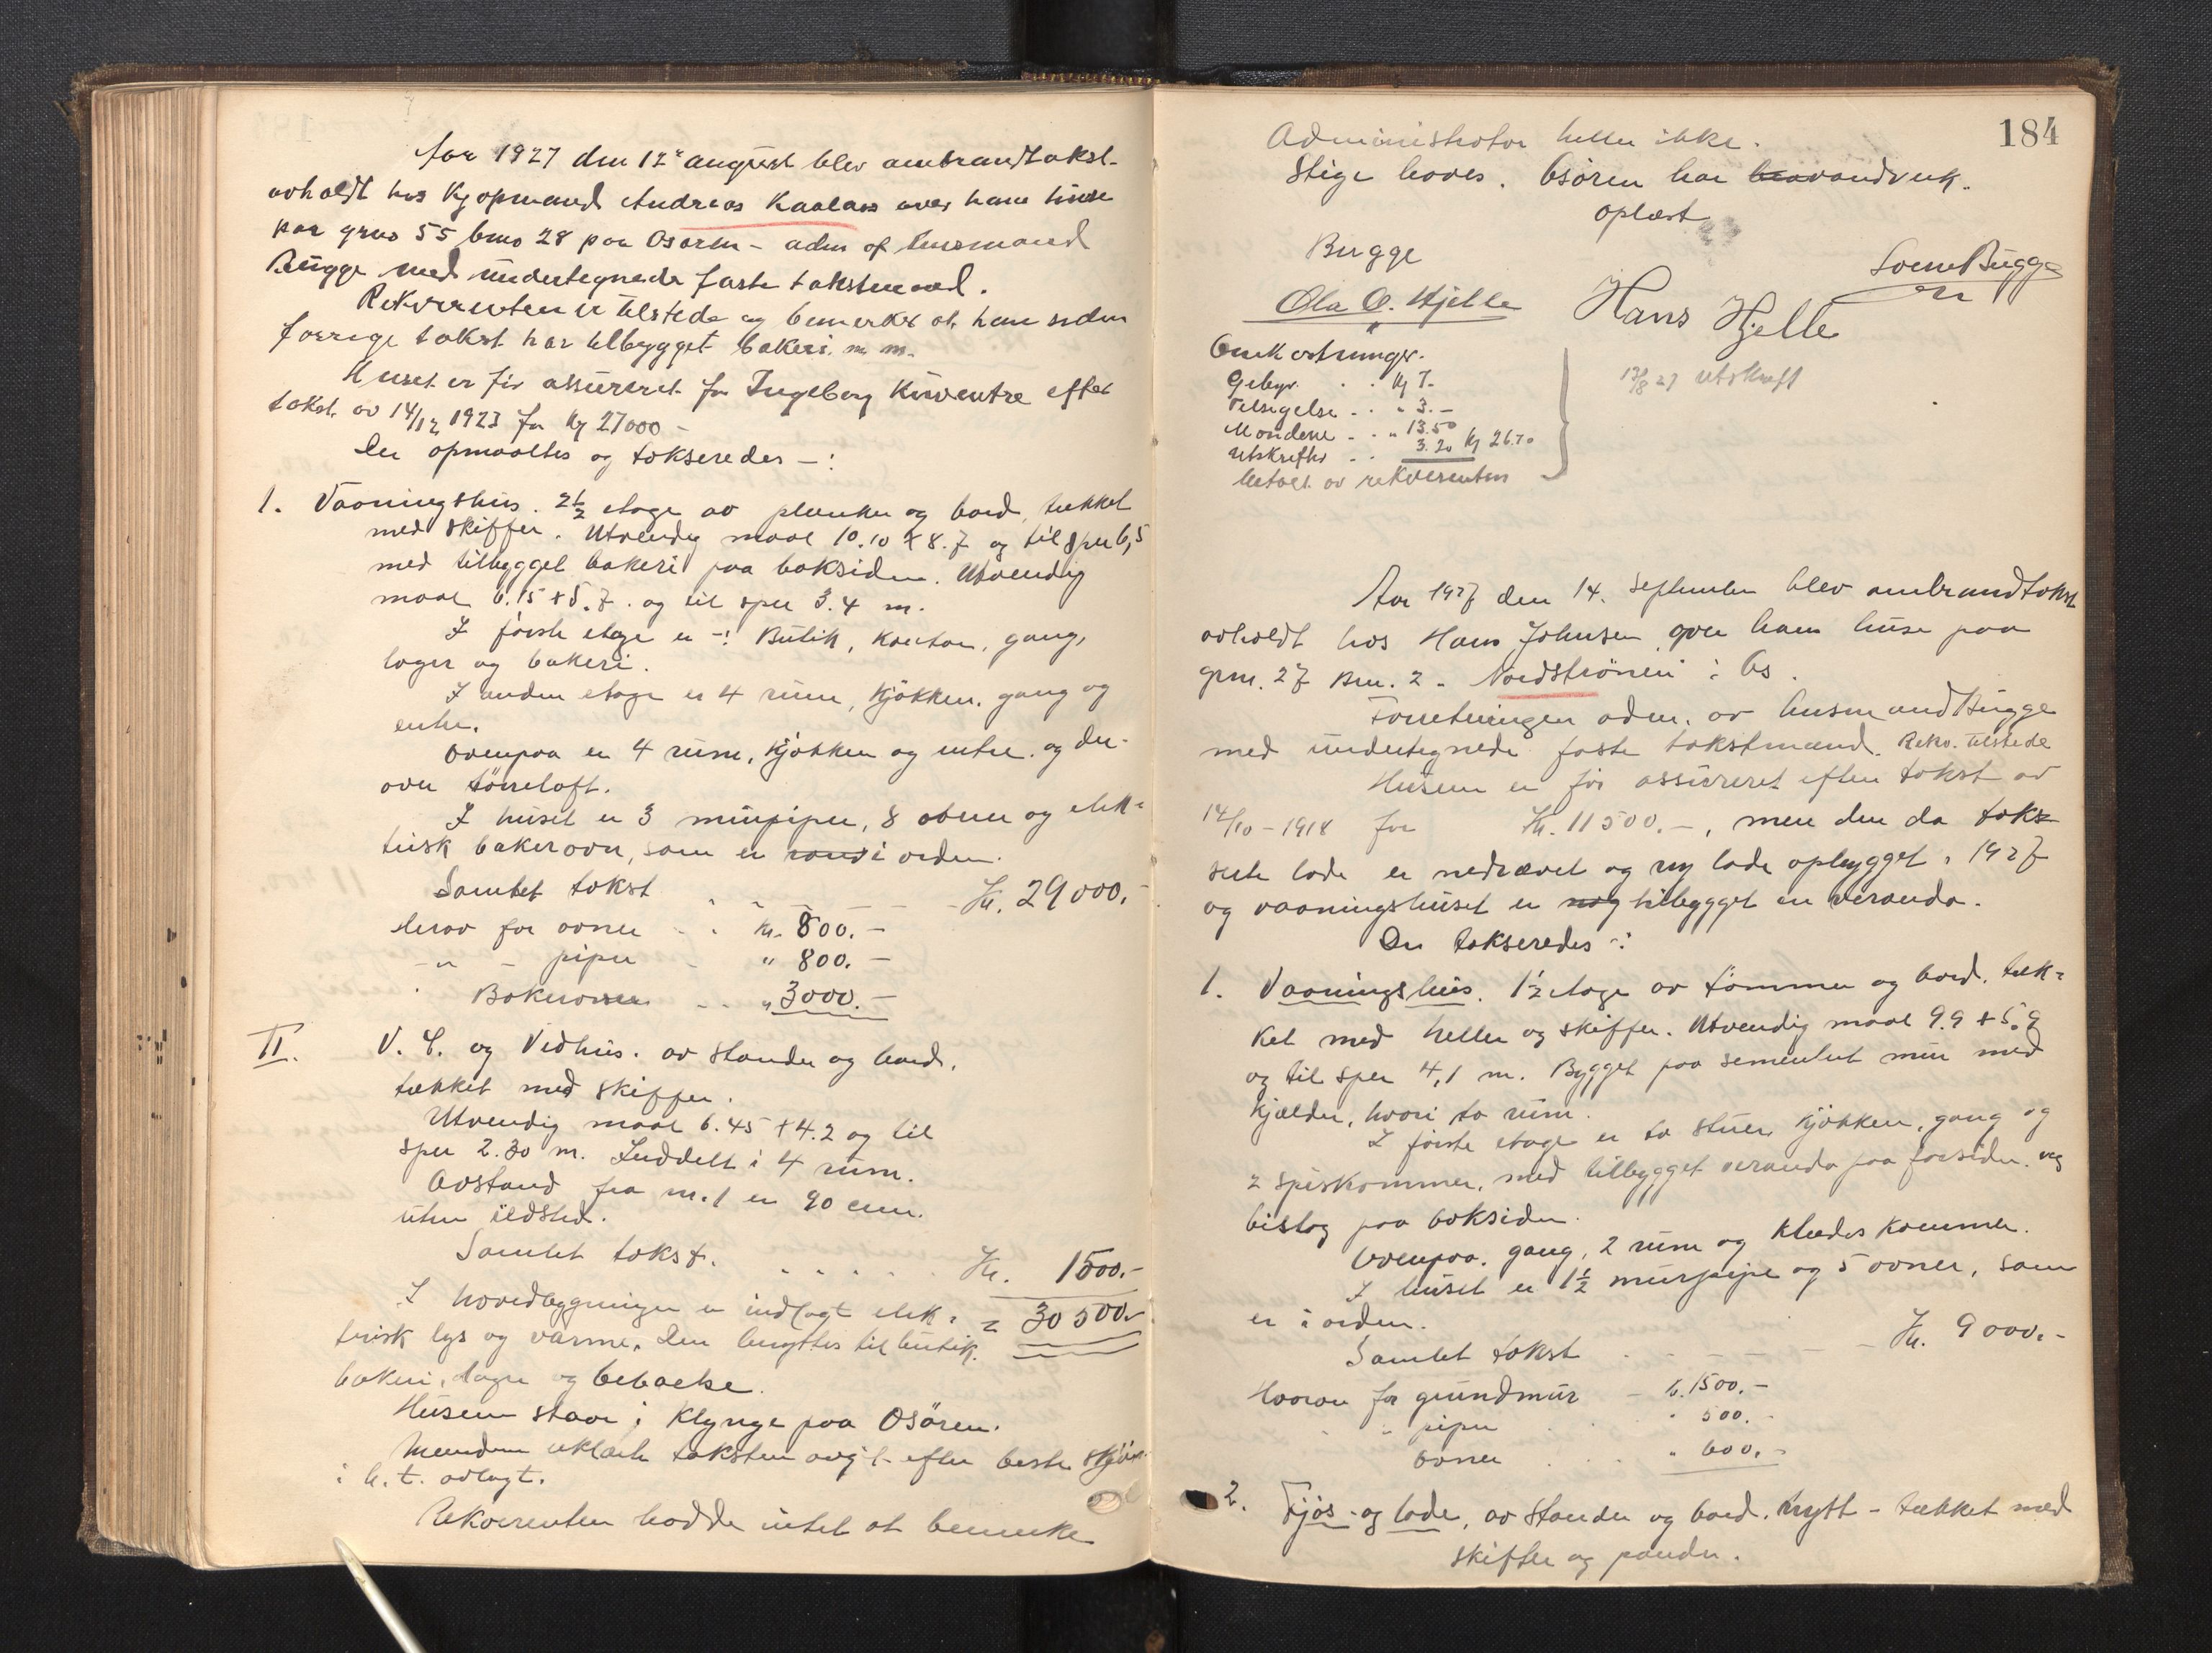 Aar 1927 den 12te august blev ombrandtakst
avholdt hos Kjøpmand Andreas Kaalaas over hans huse
paa grno 55 bno 28 paa Osøren - adm af lensmand
Bugge med undertegnede faste takstmænd.
Rekvirenten er tilstede og bemerket at han siden
forrige takst har tilbygget bakeri m. m.
Huset er før assureret for Ingeborg efter
takst av 14/12 1923 for Kr 27000 -
Der opmaaltes og takseredes -:
1. Vaaningshus. 2½ etage av planker og bord, tækket
med skiffer. Utvendig maal 10.10 + 8.7 og til sper 6,5
med tilbygget bakeri paa baksiden. Utvendig
maal 6.15 + 5.7. og til sper 3.4 m.
I første etage er -: Butik, kontor, gang,
lager og bakeri.
I anden etage er 4 rum, kjøkken, gang og
entre.
Ovenpaa er 4 rum, kjøkken og entre. og der-
over tørreloft.
I huset er 3 murpiper, 8 ovner og elek-
trisk bakerovn, som er i orden.
Samlet takst - - - Kr. 29000.-
Herav for ovner - - Kr. 800.-
-"- piper - " 800.-
" Bakerovn - - " 3000.-
II. V. C. og Vedhus. av stander og bord,
tækket med skiffer.
Utvendig maal 6.45 + 4.2 og til
sper 2.30 m. Inddelt i 4 rum.
Avstand fra nr. 1 er 90 cm.
uten ildsted.
Samlet takst. . . . . . Kr. 1500.-
I hovedbygningen er indlagt elek- = 30500.-
trisk lys og varme. Den benyttes til butik,
bakeri, lager og beboelse.
Husene staar i klynge paa Osøren.
Mændene erklærte taksten avgit efter beste skjøn
i h. t. avlagt.
Rekvirenten hadde intet at bemerke
184
Administrator heller ikke.
Stige haves. Osøren har vandverk.
Oplæst
Bugge
Sverre Bugge
Ola O. Hjelle
Hans Hjelle
Omkostninger.
Gebyr . . Kr 7.-
Tilsigelse . . " 3.-
Mændene . . " 13.50
Utskrifter . . 3.20 Kr 26.70
betalt av rekvirenten
13/8 27 utskrift
Aar 1927 den 14. september blev ombrandtakst
avholdt hos Hans Johnsen over hans huse paa
grn. 27 Brn. 2 - Nordstrønen i Os.
Forretningen adm. av lensmand Bugge
med undertegnede faste takstmænd. Rekv. tilstede
Husene er før assureret efter takst av
14/10 - 1918 for Kr. 11500.-, men den da tak-
serte lade er nedrævet og ny lade opbygget i 1927
og vaaningshuset er tilbygget en veranda.
Der takseredes -:
1. Vaaningshus. 1½ etage av tømmer og bord. tæk-
ket med heller og skiffer. Utvendig maal 9.9 + 5.9
og til sper 4,1 m. Bygget paa sementert mur med
kjælder, hvori to rum.
I første etage er to stuer, kjøkken, gang og
2 spiskammer, med tilbygget veranda paa forsiden. og
bislag paa baksiden.
Ovenpaa. gang, 2 rum og klædeskammer.
I huset er 1½ murpipe og 5 ovner, som
er i orden.
Samlet takst - - - - - Kr. 9000.-
Hvorav for grundmur - k. 1500.-
" - piper " 500.-
ovner . . . " 600.-
2. Fjøs- og lade, av stander og bord. nytt - tækket med
skiffer og pander.